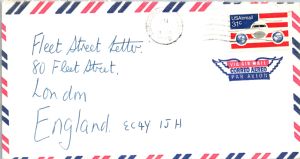 Fleet Street Letter.
80 Fleet Street.
London
England. EC4Y 1JH
USAirmail
31c
VIA AIR MAIL
CORREO AEREO
PAR AVION